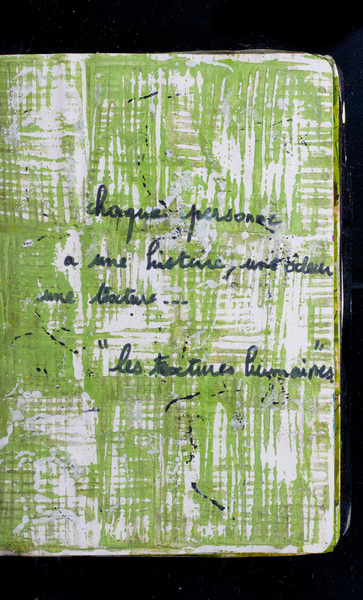 chaque personne
a une histoire, une odeur
une texture...
"les textures humaines"